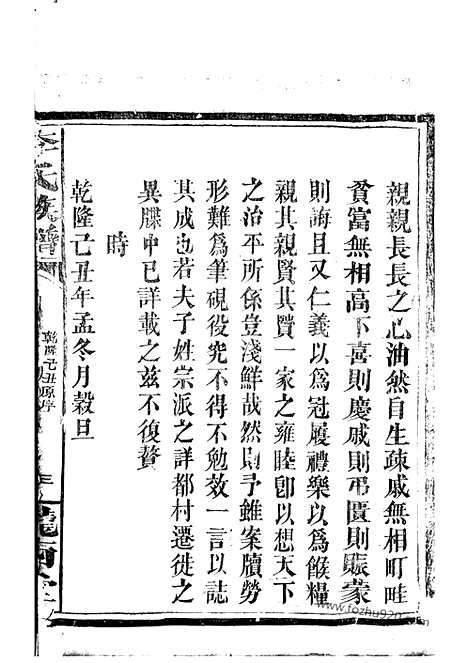 親親長長之心油然自生疎戚無相町畦
貧富無相高下喜則慶戚則弔匱則賑蒙
則誨且又仁義以爲冠履禮樂以爲餱糧
親其親賢其賢一家之雍睦卽以想天下
之治平所係豈淺鮮哉然則予雖案牘勞
形難爲筆硯役究不得不勉效一言以誌
其成也若夫子姓宗派之詳都村遷徙之
異牒中已詳載之兹不復贅
時
乾隆己丑年孟冬月榖旦
李氏族譜
乾隆己丑原序
三
隴西堂
www.fozhu920.com